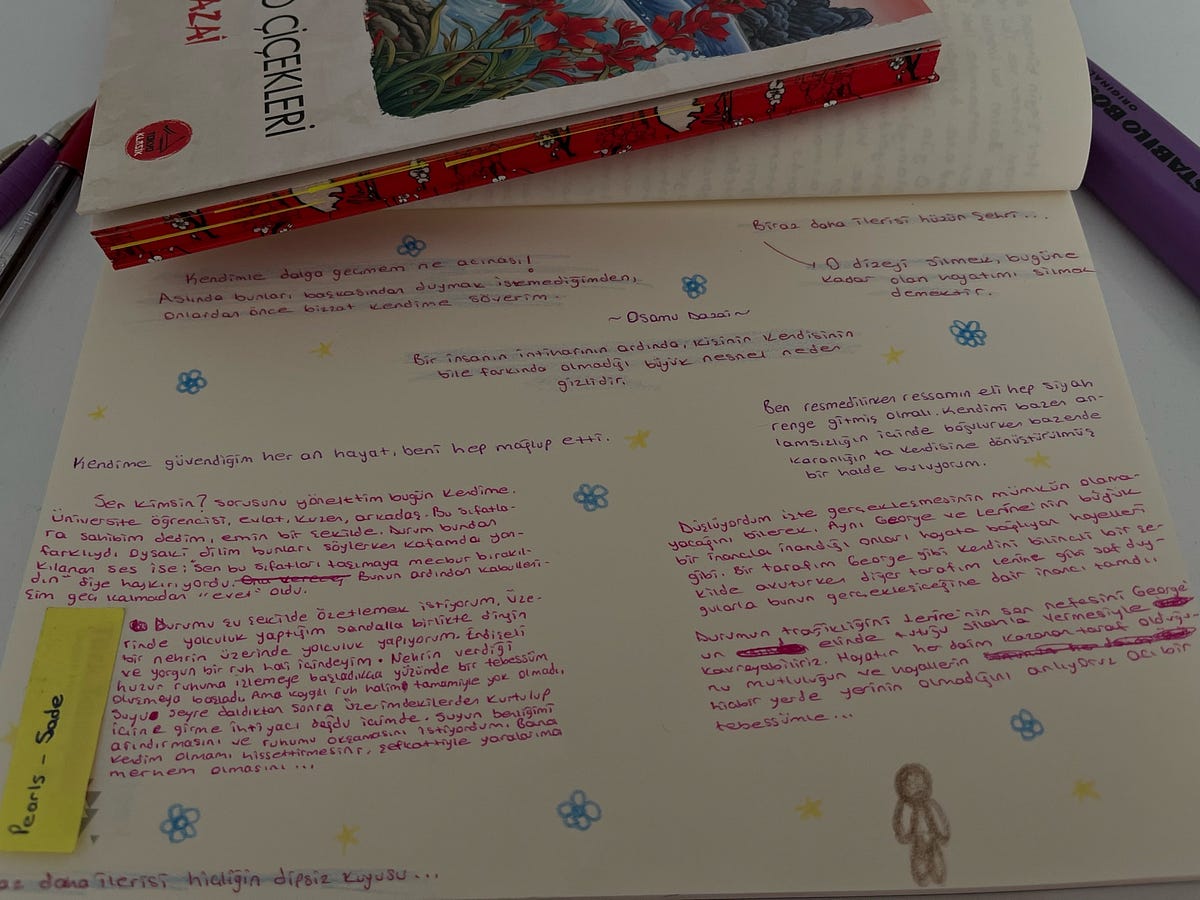 AZAİ
ÇİÇEKLERİ
KLASİK
STABILO BO
ORIGINAL
Biraz daha ilerisi hüzün şehri...
O dizeyi silmek, bugüne
kadar olan hayatımı silmek
demektir.
Kendimle dalga geçmem ne acınası!
Aslında bunları başkasından duymak istemediğimden,
onlardan önce bizzat kendime söverim.
~ Osamu Dazai ~
Bir insanın intiharının ardında, kişinin kendisinin
bile farkında olmadığı büyük nesnel neden
gizlidir.
Ben resmedilirken ressamın eli hep siyah
renge gitmiş olmalı. Kendimi bazen an-
lamsızlığın içinde boğulurken bazende
karanlığın ta kendisine dönüştürülmüş
bir halde buluyorum.
Kendime güvendiğim her an hayat, beni hep mağlup etti.
Sen kimsin? sorusunu yönelttim bugün kendime.
Üniversite öğrencisi, evlat, kuzen, arkadaş. Bu sıfatla-
ra sahibim dedim, emin bir şekilde. Durum bundan
farklıydı. Oysaki dilim bunları söylerken kafamda yan-
kılanan ses ise; "sen bu sıfatları taşımaya mecbur bırakıl-
dın" diye haykırıyordu. Bunun ardından kabulleni-
şim geç kalmadan "evet" oldu.
Durumu şu şekilde özetlemek istiyorum, üze-
rinde yolculuk yaptığım sandalla birlikte dingin
bir nehrin üzerinde yolculuk yapıyorum. Endişeli
ve yorgun bir ruh hali içindeyim. Nehrin verdiği
huzur ruhuma izlemeye başladıkça yüzümde bir tebessüm
oluşmaya başladı. Ama kaygılı ruh halim tamamiyle yok olmadı.
Suyu seyre daldıktan sonra üzerimdekilerden kurtulup
içine girme ihtiyacı doğdu içimde. Suyun benliğimi
arındırmasını ve ruhumu okşamasını istiyordum. Bana
kendim olmamı hissettirmesini, şefkatiyle yaralarıma
merhem olmasını...
Düşlüyordum işte gerçekleşmesinin mümkün olama-
yacağını bilerek. Aynı George ve Lenine'nin büyük
bir inançla inandığı onları hayata bağlayan hayelleri
gibi. Bir tarafım George gibi kendini bilinçli bir şe-
kilde avuturken diğer tarafım Lenine gibi saf duy-
gularla bunun gerçekleşiceğine dair inancı tamdı.
Durumun trajikliğini Lenine'nin son nefesini George'
un elinde tuttuğu silahla vermesiyle
kavrayabiliriz. Hayatın her daim kazanan taraf olduğu-
nu mutluluğun ve hayallerin
hiçbir yerde yerinin olmadığını anlıyoruz acı bir
tebessümle...
Pearls - Sade
az daha ilerisi hiçliğin dipsiz kuyusu...